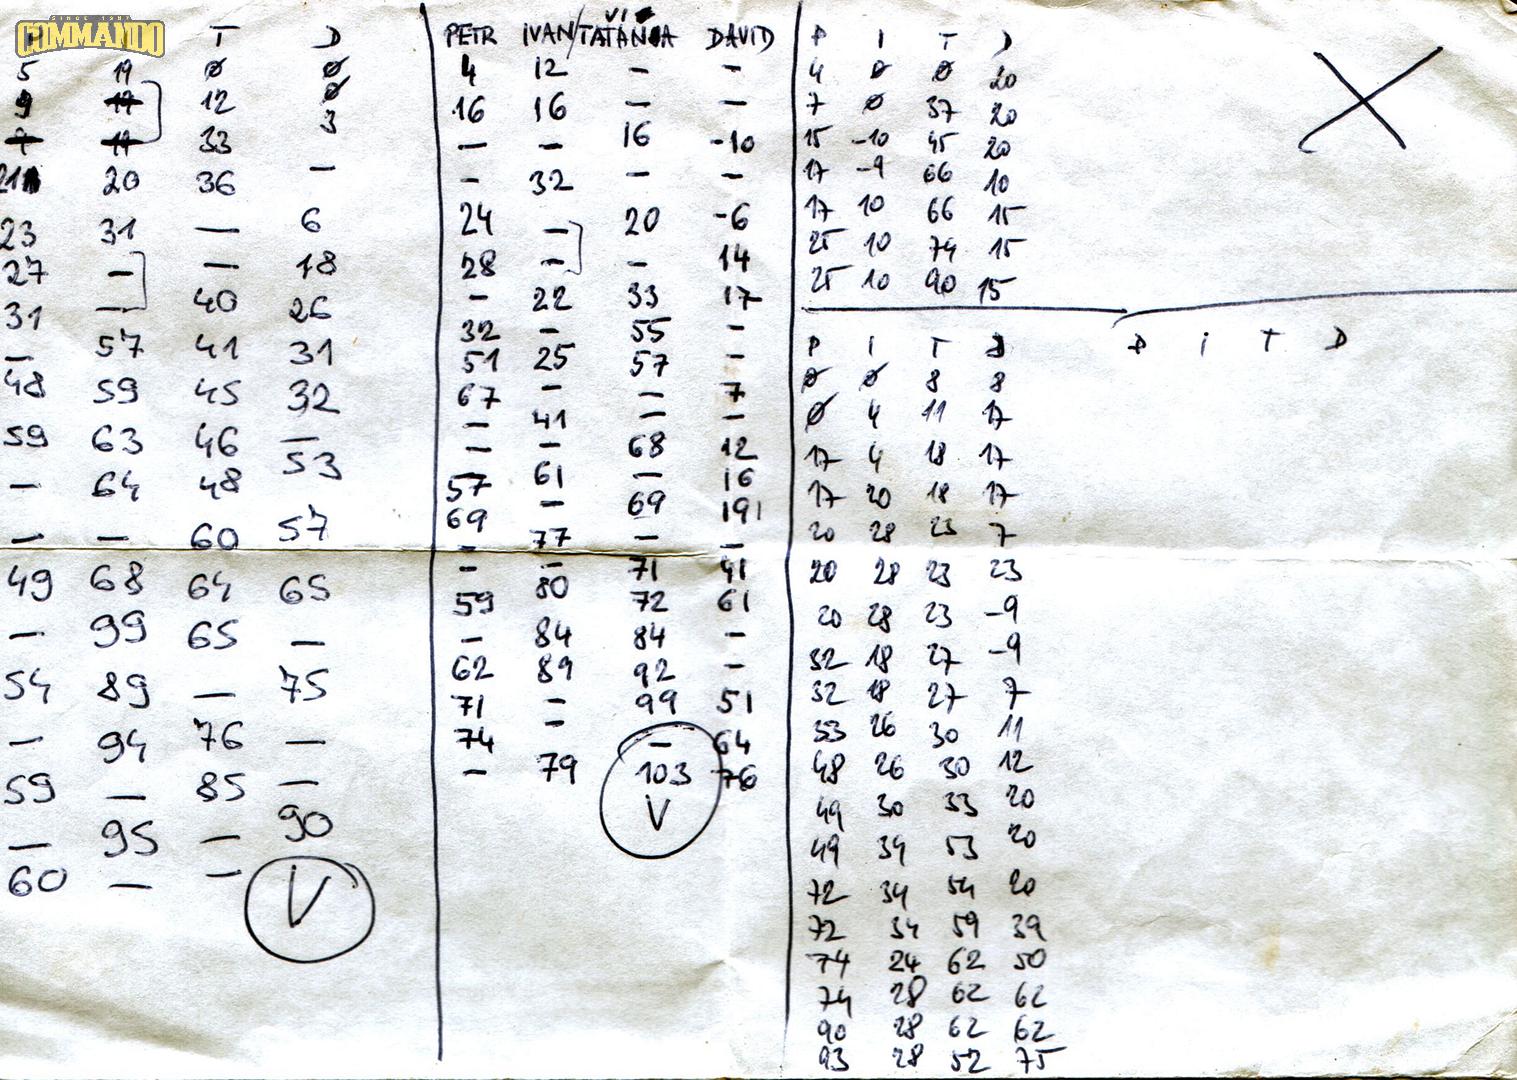 SINCE 1987
COMMANDO
T D
5 19 ø ø
9 17 12 ø
7 17 33 3
21 20 36 —
23 31 — 6
27 — — 18
31 — 40 26
— 57 41 31
48 59 45 32
59 63 46 —
— 64 48 53
— — 60 57
49 68 64 65
— 99 65 —
54 89 — 75
— 94 76 —
59 — 85 —
— 95 — 90
60 — —
V
PETR IVAN/TAŤÁNA DAVID
4 12 — —
16 16 — —
— — 16 -10
— 32 — —
24 — 20 -6
28 — — 14
— 22 33 17
32 — 55 —
51 25 57 —
67 — — 7
— 41 — —
— — 68 12
57 61 — 16
69 — 69 19
— 77 — —
— — 71 41
59 80 72 61
— 84 84 —
62 89 92 —
71 — 99 51
74 — — 64
— 79 103 76
V
P I T D
4 ø ø 20
7 ø 37 20
15 -10 45 20
17 -9 66 10
17 10 66 15
25 10 74 15
25 10 90 15
P I T D
ø ø 8 8
ø 4 11 17
17 4 18 17
17 20 18 17
20 28 23 7
20 28 23 23
20 28 23 -9
32 18 27 -9
32 18 27 7
33 26 30 11
48 26 30 12
49 30 33 20
49 34 53 20
72 34 54 20
72 34 59 39
74 24 62 50
74 28 62 62
90 28 62 62
93 28 52 75
P i T D